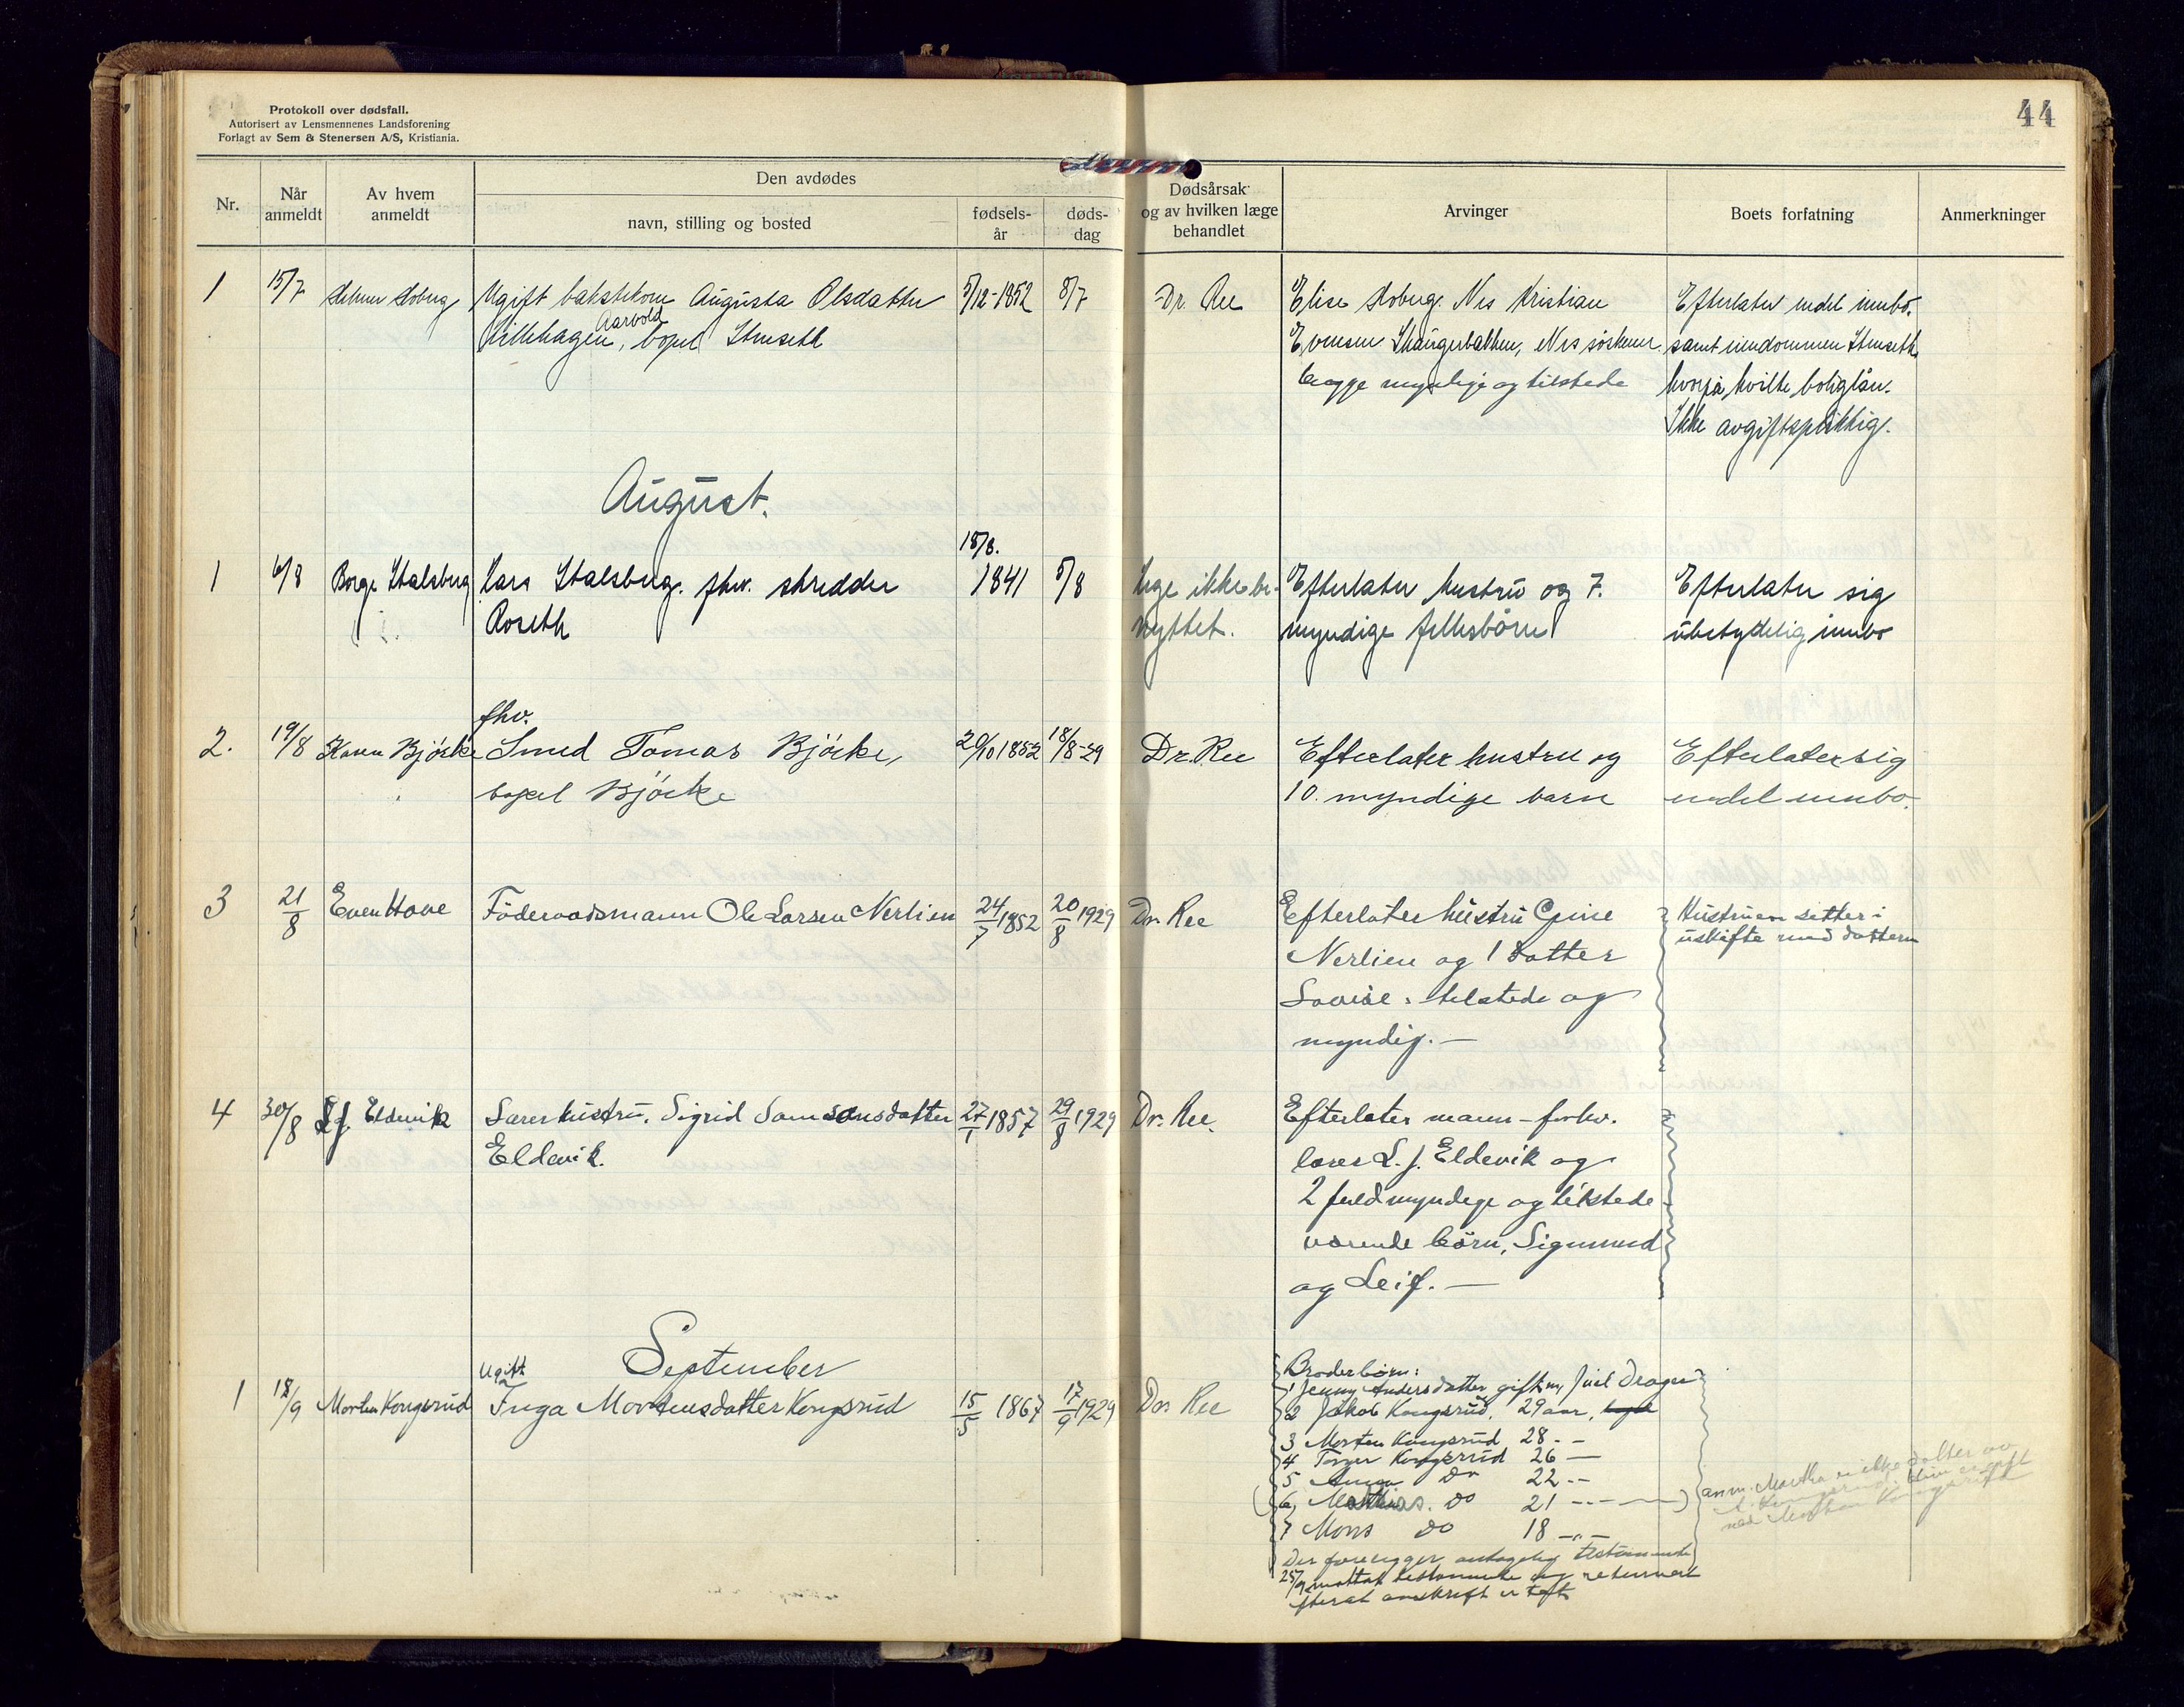 44
Protokoll over dødsfall.
Autorisert av Lensmennenes Landsforening
Forlagt av Sem & Stenersen A/S, Kristiania.
Nr.
Når anmeldt
Av hvem anmeldt
Den avdødes
navn, stilling og bosted
fødsels-år
døds-dag
Dødsårsak og av hvilken læge behandlet
Arvinger
Boets forfatning
Anmerkninger
1 15/7 Ugift bakstekone Augusta Olsdatter 5/12-1852 8/7 Dr. Ree Elise Hoberg. Nes Kristian Efterlater endel innbo.
Aarvold
Lillehagen, bopel Evensen Skaugerbakken, Nes søskener samt eiendommen
begge myndige og tilstede hvorpå hvilte boliglån.
Ikke avgiftspliktig.
August.
15/8.
1 6/8 Borge Stalsberg Lars Stalsberg. fhv. skredder 1841 5/8 Lege ikke be- Efterlater hustru og 7. Efterlater sig
Roseth nyttet. myndige fellesbörn ubetydelig innbo
fhv.
2. 19/8 Karen Björke Smed Tomas Björke, 20/10 1852 18/8-29 Dr. Ree Efterlater hustru og Efterlater sig
bopel Björke 10. myndige barn endel innbo.
3 21/8 Even Hove Föderaadsmann Ole Larsen Nerlien 24/7 1852 20/8 1929 Dr. Ree Efterlater hustru Hustruen sitter i
Nerlien og 1 datter uskifte med datteren
Lovise: tilstede og
myndig. —
4 30/8 L. J. Eldevik Lærerhustru. Sigrid Samsonsdatter 27/1 1857 29/8 1929 Dr. Ree. Efterlater mann – forhv.
Eldevik. lærer L. J. Eldevik og
2 fuldmyndige og tilstede-
værende börn, Sigmund
og Leif. —
September
Ugift
1 18/9 Morten Kongsrud Inga Mortensdatter Kongsrud 15/5 1867 17/9 1929 Dr. Ree
Broderbörn:
1 Jenny Andersdatter gift m/ Juel Drager
2 Jakob Kongsrud. 29 aar,
3 Morten Kongsrud 28 - -
4 Kongsrud 26 —
5 Anna Do 22 - -
(6) Do 21 - - -)
7 Mons Do 18 - „ -
Der foreligger antagelig testamente
25/9 mottatt testamente og returnert
efterat avskrift er tatt
anm. Martha er ikke datter av
A. Kongsrud. Hun er gift
med Morten Kongsrud